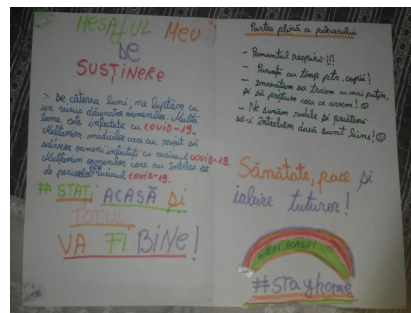 MESAJUL MEU
DE
SUSȚINERE
> De câteva luni, ne luptăm cu
un virus dăunător oamenilor. Multă
lume este infectată cu COVID-19.
Mulțumim medicilor care au reușit să
salveze oameni infectați cu virusul COVID-19.
Mulțumim oamenilor care au
de pericolul virusul COVID-19.
# STAȚI ACASĂ ȘI
TOTUL
VA FI BINE!
Partea plină a paharului
- Pământul respiră!!!
- Părinții au timp ptr. copii!
- Învățăm să trăim cu mai puțin,
și să prețuim ceea ce avem!
- Ne sunăm rudele și prietenii
să-i întrebăm dacă sunt bine!
Sănătate, pace și
iubire tuturor!
#STAI ACASĂ!
#Stayhome